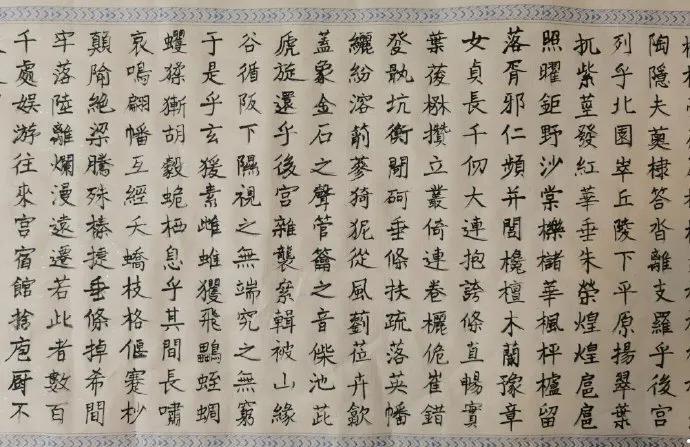 陶隱夫薁棣答沓離支羅乎後宮
列乎北園崒丘陵下平原揚翠葉
扤紫莖發紅華垂朱榮煌煌扈扈
照曜鉅野沙棠櫟櫧華楓枰櫨留
落胥邪仁頻并閭欃檀木蘭豫章
女貞長千仞大連抱誇條直暢實
葉葰楙攢立叢倚連卷欐佹崔錯
發骫坑衡閜砢垂條扶疏落英幡
纚紛溶萷蔘猗狔從風藰莅卉歙
蓋象金石之聲管籥之音偨池茈
虒旋還乎後宮雜襲絫輯被山緣
谷循阪下隰視之無端究之無窮
于是乎玄猨素雌蜼玃飛鸓蛭蜩
蠼猱獑胡豰蛫栖息乎其間長嘯
哀鳴翩幡互經夭蟜枝格偃蹇杪
顛隃絕梁騰殊榛捷垂條掉希間
牢落陸離爛漫遠遷若此者數百
千處娛游往來宮宿館捨庖廚不